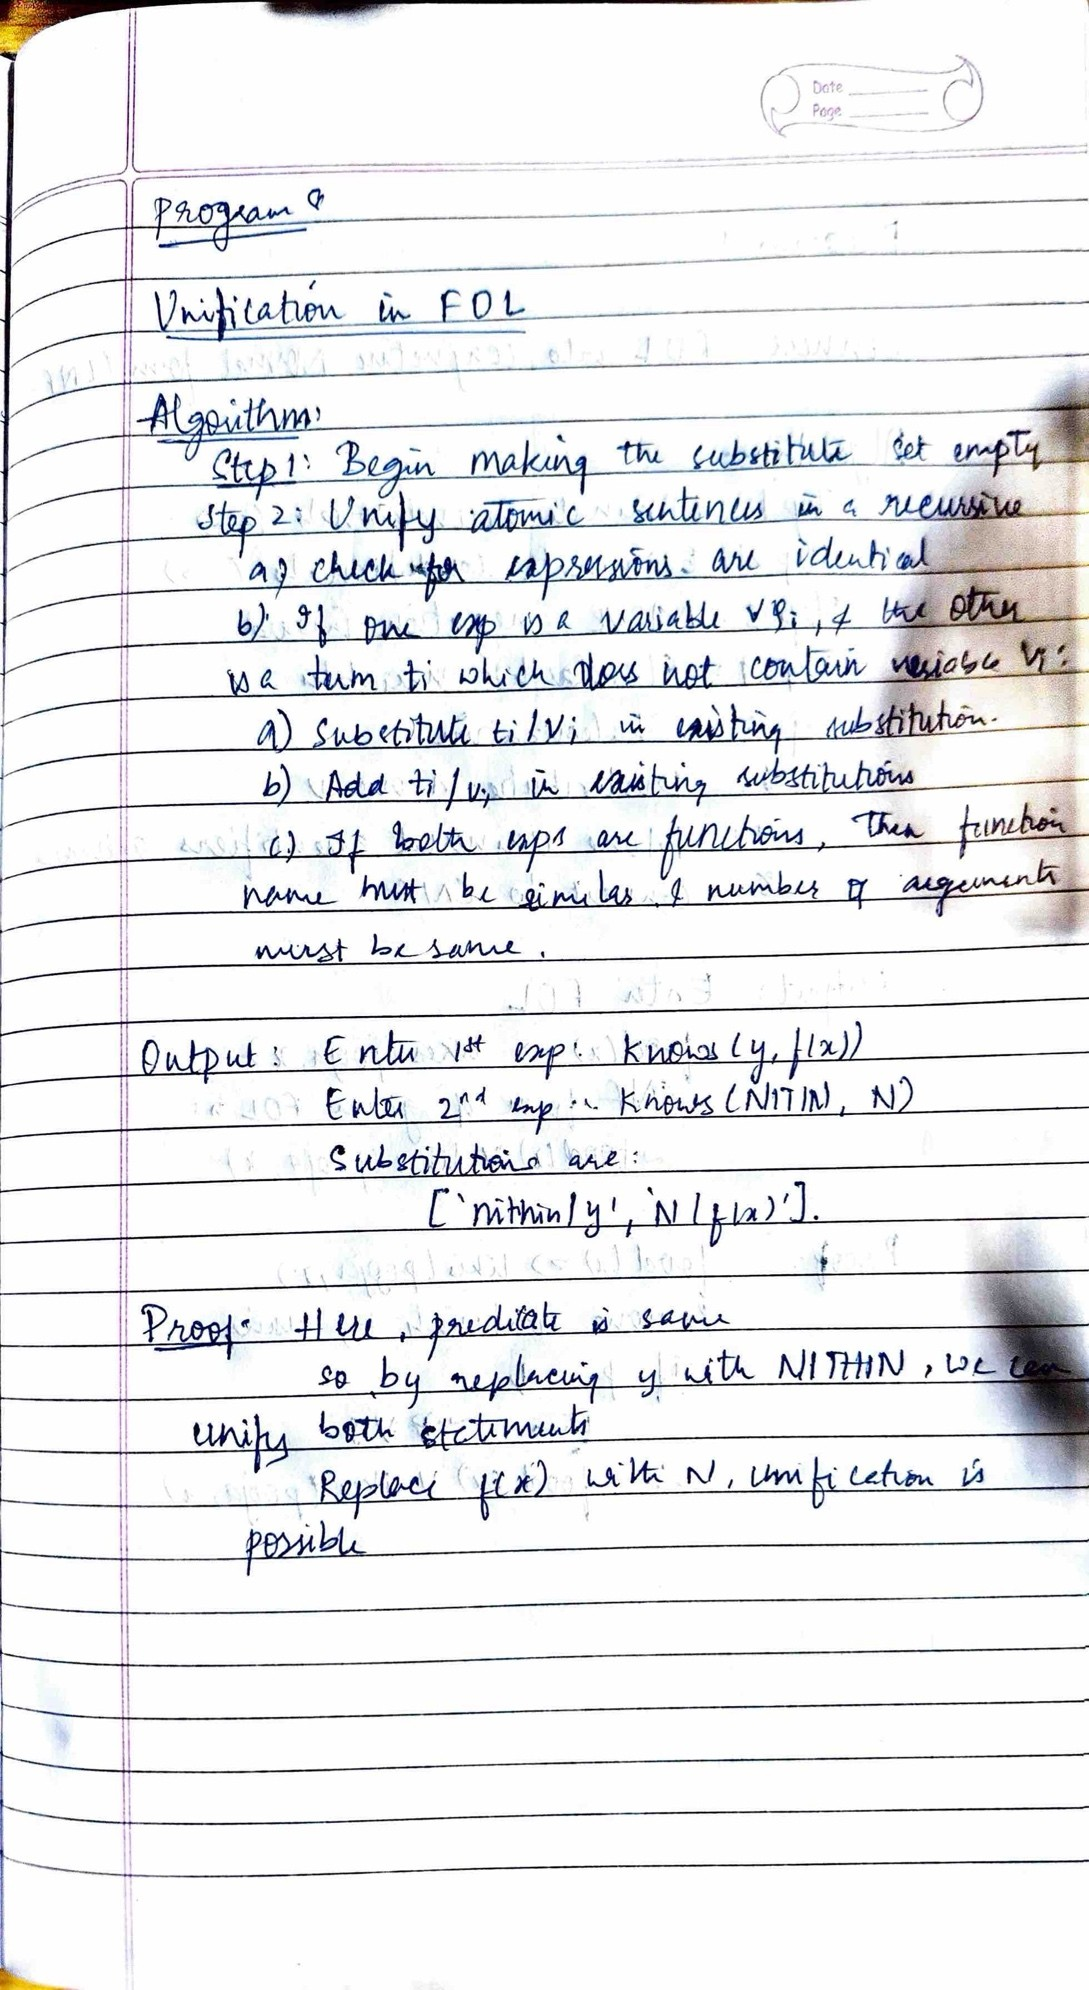 Date
Page
Program 8
Unification in FOL
Algorithm:
Step 1: Begin making the substitute set empty
Step 2: Unify atomic sentences in a recursive
a) check for expressions are identical
b) If one exp is a variable vi, & the other
is a term ti which does not contain variable vi:
a) Substitute ti/vi in existing substitution.
b) Add ti/vi in existing substitutions
c) If both exps are functions, then function
name must be similar & number of arguments
must be same.
Output: Enter 1st exp: Knows(y, f(x))
Enter 2nd exp: Knows(NITIN, N)
Substitutions are:
['nithin/y', 'N/f(x)'].
Proof: Here, predicate is same
so by replacing y with NITHIN, we can
unify both statements
Replace f(x) with N, unification is
possible